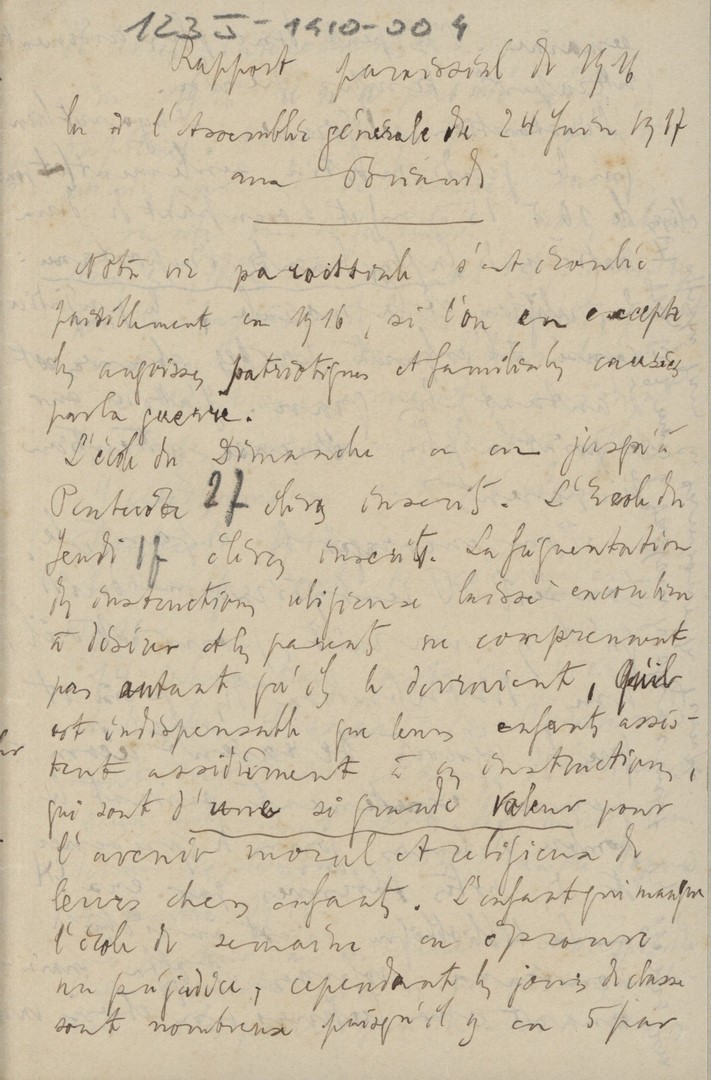 123 J - 1910-00 4
Rapport paroissial de 1916
lu à l'Assemblée générale du 24 Juin 1917
aux
Notre vie paroissiale s'est écoulée
paisiblement en 1916, si l'on en excepte
les angoisses patriotiques et familiales causées
par la guerre.
L'école du Dimanche a eu jusqu'à
Pentecôte 27 élèves inscrits. L'Ecole du
Jeudi 17 élèves inscrits. La fréquentation
des instructions religieuse laisse encore bien
à désirer et les parents ne comprennent
pas autant qu'ils le devraient, qu'il
est indispensable que leurs enfants assis-
tent assidûment à ces instructions,
qui sont d'une si grande valeur pour
l'avenir moral et religieux de
leurs chers enfants. L'enfant qui manque
l'école de semaine en éprouve
un préjudice, cependant les jours de classe
sont nombreux puisqu'il y en a 5 par